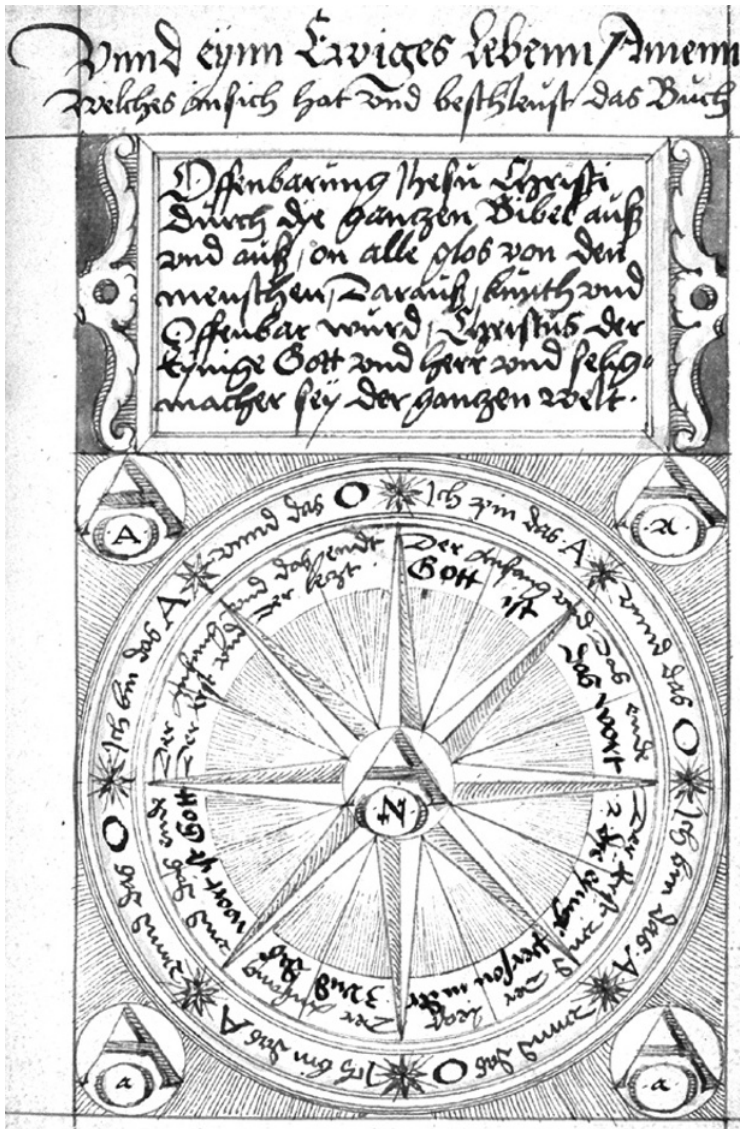 Vnnd eynn Ewiges lebenn Amenn
Welches ansich hat vnd beschleust das Buch
Offenbarung Jhesu Christi
Durch dye gantzen Bibel auß
vnd auß, on alle glos von den
menschen, Darauß kunth vnd
Offenbar wurd, Christus der
Eynige Gott vnd herr vnd selig-
macher sey der gantzen welt.
Ich bin das A
vnnd das O
Ich bin das A
vnnd das O
Ich bin das A
vnnd das O
Ich bin das A
vnnd das O
Der Anfang vnd Das ende
Der
Der Anfang vnd das ende
Der Anfang vnd das endt
Der letzt.
Gott ist
Das wort
wort ist Gott
A
A
a
a
N